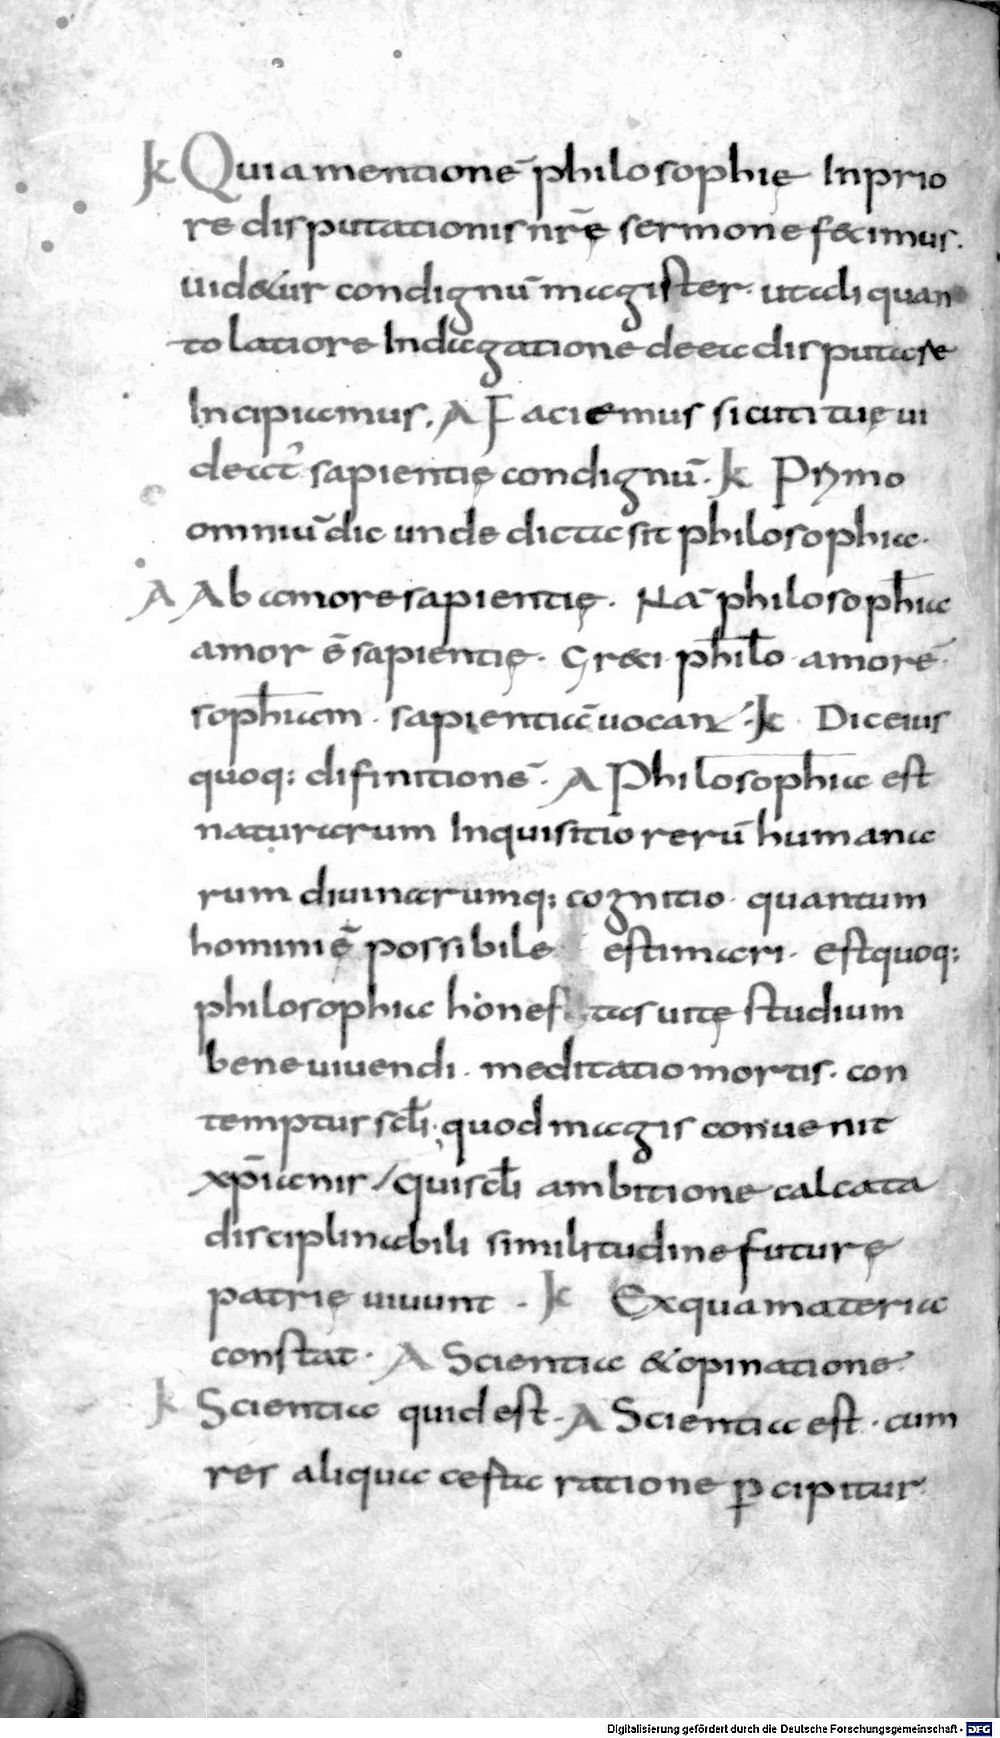 k Quia mentionē philosophię In prio
re disputationis nr̄ę sermone fecimus.
uidetur condignū magister. ut adi quan
to latiore Indagatione de ea disputare
Incipiamus. A Faciemus sicuti tuę ui
deat᷑ sapientię condignū. k Primo
omniū dic unde dicta sit philosophia.
A Ab amore sapientię. Nā philosophia
amor ē sapientię. Greci philo amorē.
sophiam. sapientiā uocant. k Dic eius
quoq; difinitionē. A Philosophia est
naturarum Inquisitio rerū humana
rum diuinarumq; cognitio. quantum
homini ē possibile estimari. est quoq;
philosophia honestas uitę studium
bene uiuendi. meditatio mortis. con
temptus sc̄li. quod magis conuenit
xp̄ianis / qui sc̄li ambitione calcata
disciplinabili similitudine futurę
patrię uiuunt. k Ex qua materia
constat. A Scientia & opinatione.
k Scientia quid est. A Scientia est. cum
res aliqua certa ratione ꝑcipitur.
Digitalisierung gefördert durch die Deutsche Forschungsgemeinschaft - DFG